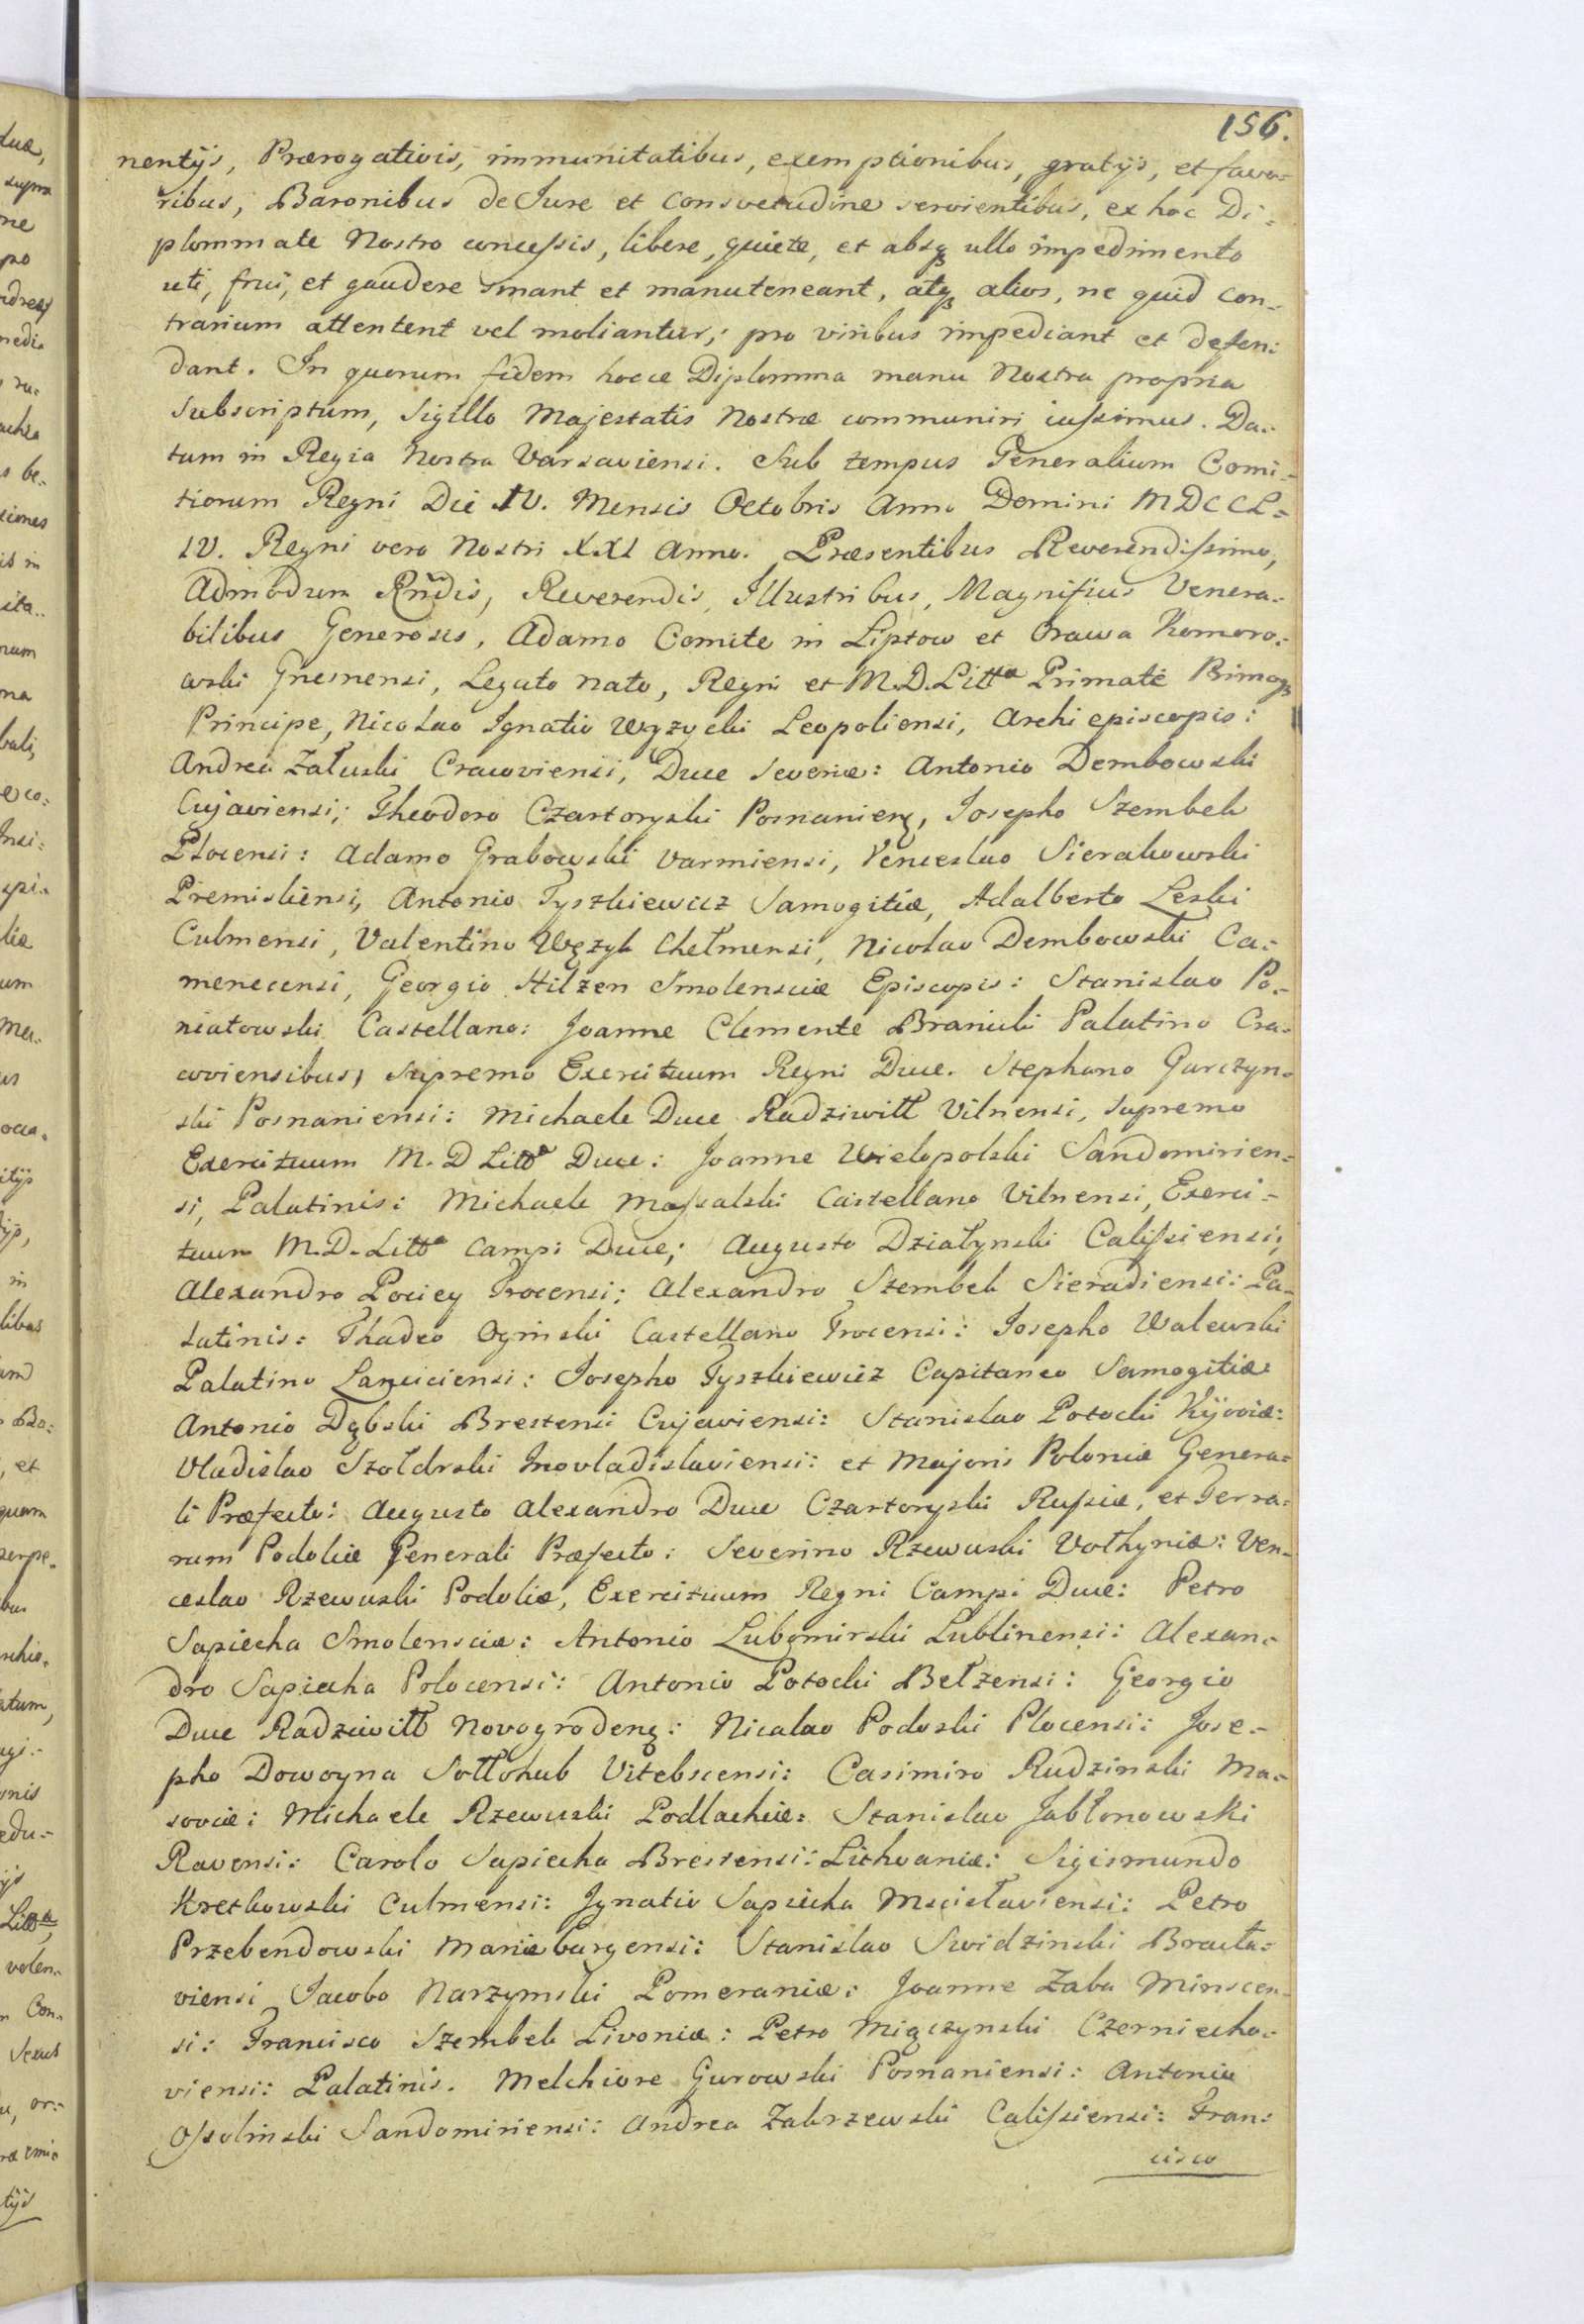 156.
nentijs, Prærogativis, immunitatibus, exemptionibus, gratijs, et favo=
ribus, Baronibus de Jure et Consvetudine servientibus, ex hoc Di=
plommate Nostro concessis, libere, quiete, et absq ullo impedimento
uti, frui, et gaudere sinant et manuteneant, atq alios, ne quid con=
trarium attentent vel moliantur; pro viribus impediant et defen=
dant. In quorum fidem hocce Diplomma manu Nostra propria
subscriptum, Sigillo Majestatis Nostræ communiri iussimus. Da=
tum in Regia Nostra Varsaviensi. Sub tempus Generalium Comi=
tiorum Regni Die IV. Mensis Octobris Anno Domini MDCCL=
IV. Regni vero Nostri XXI Anno. Præsentibus Reverendissimo,
Admodum Rndis, Reverendis, Illustribus, Magnificis Venera=
bilibus Generosis, Adamo Comite in Liptow et Orawa Komoro=
wski Gnesnensi, Legato nato, Regni et M.D. Litta Primate Primoq
Principe, Nicolao Ignatio Wyzycki Leopoliensi, Archiepiscopis:
Andrea Załuski Cracoviensi, Duce Severiæ: Antonio Dembowski
Cujaviensi; Theodoro Czartoryski Posnanienz, Josepho Szembek
Plocensi: Adamo Grabowski Varmiensi, Venceslao Sierakowski
Premisliensi, Antonio Tyszkiewicz Samogitiæ, Adalberto Leski
Culmensi, Valentino Węzyk Chełmensi, Nicolao Dembowski Ca=
menecensi, Georgio Hilzen Smolensciæ Episcopis: Stanislao Po=
niatowski Castellano: Joanne Clemente Branicki Palatino Cra=
coviensibus, Supremo Exercituum Regni Duce. Stephano Garczyn=
ski Posnaniensi: Michaele Duce Radziwiłł Vilnensi, Supremo
Exercituum M.D Litta Duce: Joanne Wielopolski Sandomirien=
si, Palatinis: Michaele Massalski Castellano Vilnensi, Exerci=
tuum M.D. Litta Campi Duce; Augusto Działynski Calissiensi;
Alexandro Pociey Trocensi: Alexandro Szembek Sieradiensi: Pa=
latinis: Thadeo Oginski Castellano Trocensi: Josepho Walewski
Palatino Lanciciensi: Josepho Tyszkiewicz Capitaneo Samogitiæ:
Antonio Dąbski Brestensi Cujaviensi: Stanislao Potocki Kijoviæ:
Vladislao Szołdrski Inovladislaviensi: et Majoris Poloniæ Genera=
li Præfecto: Augusto Alexandro Duce Czartoryski Russiæ, et Terra=
rum Podoliæ Generali Præfecto: Severino Rzewuski Vołhyniæ: Ven=
ceslao Rzewuski Podoliæ, Exercituum Regni Campi Duce: Petro
Sapiecha Smolensciæ: Antonio Lubomirski Lublinensi: Alexan=
dro Sapiecha Polocensi: Antonio Potocki Bełzensi: Georgio
Duce Radziwiłł Novogrodenz: Nicolao Podoski Plocensi: Jose=
pho Dowoyna Sołłohub Vitebscensi: Casimiro Rudzinski Ma=
soviæ: Michaele Rzewuski Podlachiæ: Stanislao Jabłonowski
Ravensi: Carolo Sapiecha Brestensi: Lithvaniæ: Sigismundo
Kretkowski Culmensi: Ignatio Sapiecha Mscisłaviensi: Petro
Przebendowski Mariæburgensi: Stanislao Swidzinski Bracła=
viensi Jacobo Narzymski Pomeraniæ: Joanne Zaba Minscen=
si: Francisco Szembek Livoniæ: Petro Miączynski Czerniecho=
viensi: Palatinis. Melchiore Gurowski Posnaniensi: Antonio
Ossolinski Sandomiriensi: Andrea Zakrzewski Calissiensi: Fran=
cisco